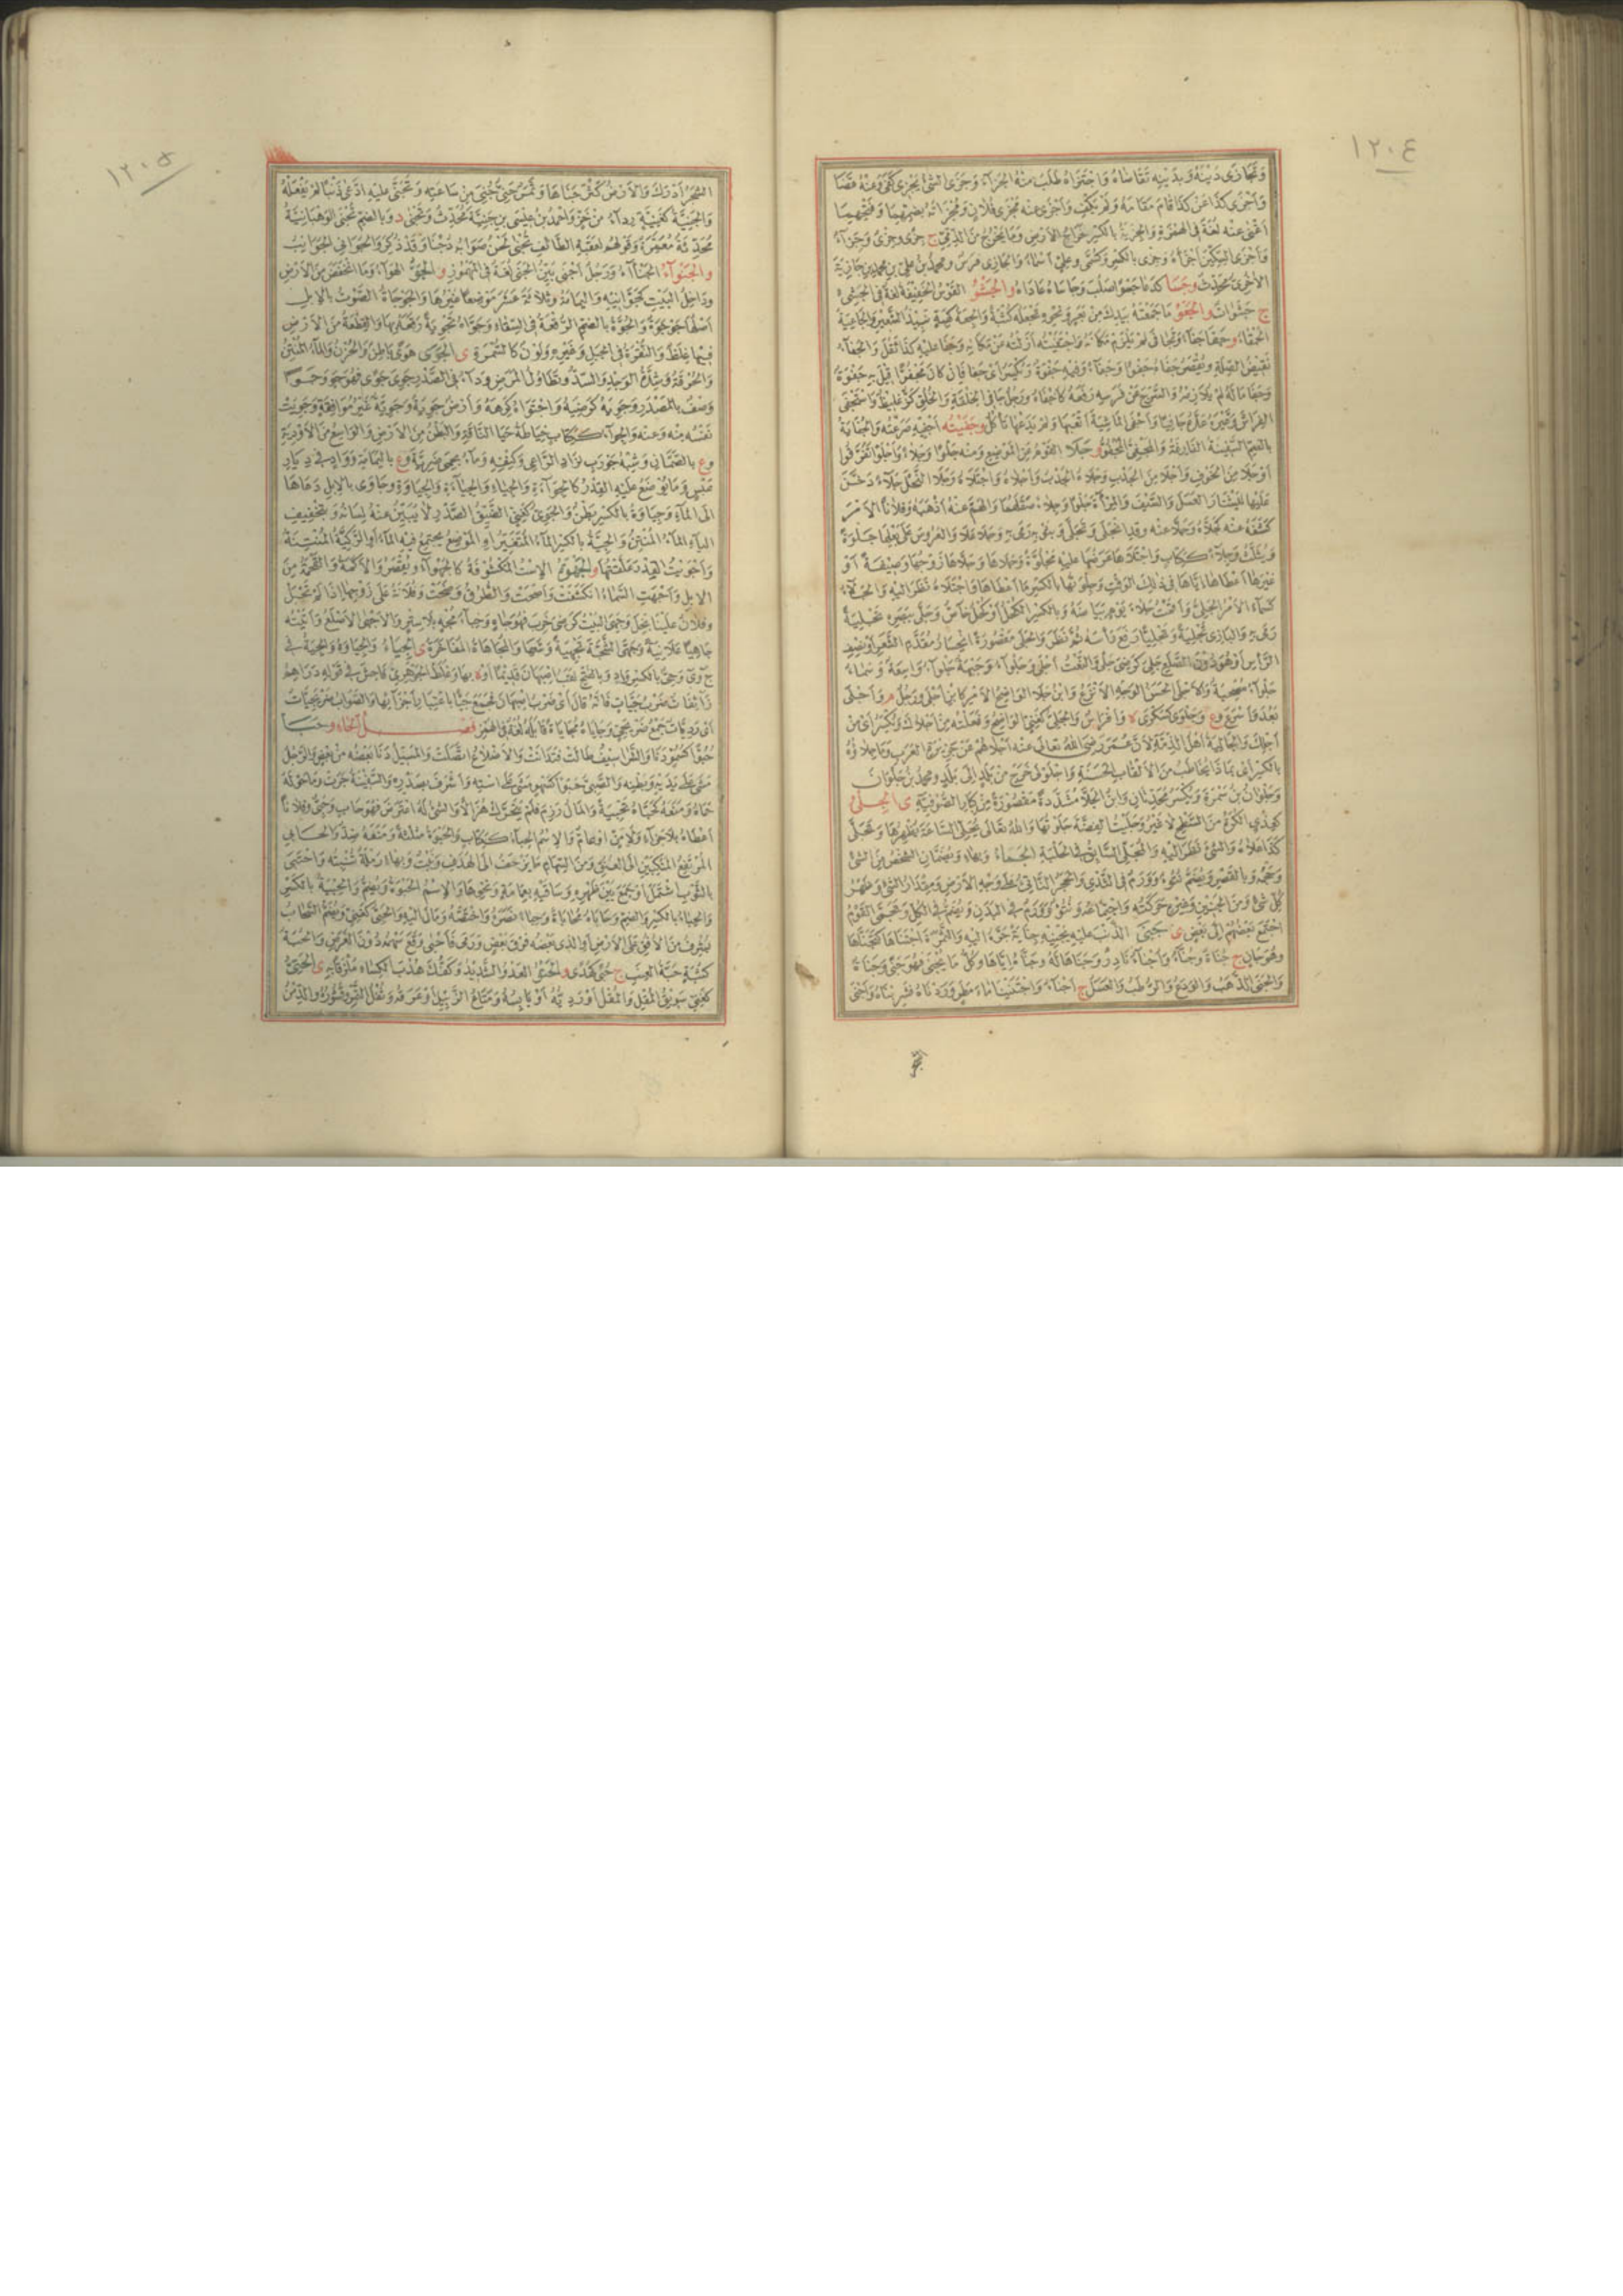 ١٢٠٤
وتجازى دينه وبدينه تقاضاه واجتزاه طلب منه الجزآء وجزى الشئ يجزى كفى وعنه قضا
وأجزى كذا عن كذا قام مقامه ولم يكف وأجزى عنه مجزى فلان ومجزاته بضمهما وفتحهما
أغنى عنه لغة فى الهمزة والجزية بالكسر خراج الأرض وما يؤخذ من الذمى ج جزى وجزى وجزآء
وأجزى السكين أجزأه وجزى بالكسر وكسمى وعلى أسماء والجازى فرس ومحمد بن على بن محمد بن جازية
الآخرى محدث وجسا كدعا جسوا صلب وجاساه عاداه والجشو القوس الخفيفة لغة فى الجشء
ج جشوات والجعو ما جمعته بيدك من بعر ونحوه تجعله كثبة والجعة كهبة نبيذ الشعير والجاعية
الحمقاء وجفا جفآء وتجافى لم يلزم مكانه واجتفيته أزلته عن مكانه وجفا عليه كذا ثقل والجفآء
نقيض الصلة ويقصر جفاه جفوا وجفآء وفيه جفوة وتكسر أى جفا فإن كان مجفوا قيل به جفوة
وجفا ماله لم يلازمه والسرج عن فرسه رفعه كأجفاه ورجل جافى الخلقة والخلق كز غليظ واستجفى
الفراش وغيره عده جافيا وأجفى الماشية أتعبها ولم يدعها تأكل وجفيته أجفيه صرعته والجفاية
بالضم السفينة الفارغة والجفى المجفو وجلا القوم عن الموضع ومنه جلوا وجلاء وأجلوا تفرقوا
أو جلا من الخوف وأجلا من الجدب وجلاه الجدب وأجلاه واجتلاه وجلا النحل جلآء دخن
عليها ليشتار العسل والسيف والمرآة جلوا وجلاء صقلهما والهم عنه أذهبه وفلانا الأمر
كشفه عنه كجلاه وجلا عنه وقد انجلى وتجلى وبثوبه رمى به وجلا علا والعروس على بعلها جلوة
ويثلث وجلآء ككتاب واجتلاها عرضها عليه مجلوة وجلاها وجلاها زوجها وصيفة أو
غيرها أعطاها اياها فى ذلك الوقت وجلوتها بالكسر ما أعطاها واجتلاه نظر اليه والجلآء
كسمآء الأمر الجلى وأقمت جلاء يوم بياضه وبالكسر الكحل أو كحل خاص وجلى ببصره تجلية
رمى به والبازى تجلية وتجليا رفع رأسه ثم نظر والجلى مقصورة انحسار مقدم الشعر أو نصف
الرأس أو هو دون الصلع جلى كرضى جلا والنعت أجلى وجلوآء وجبهة جلوآء واسعة وسماء
جلوآء مصحية والأجلى الحسن الوجه الأنزع وابن جلا الواضح الأمر كابن أجلى ورجل م وأجلى
يعدو أسرع وع وجلوى كسكرى ة وأفراس والجلى كغنى الواضح وفعلته من أجلاك ويكسر أى من
أجلك والجالية أهل الذمة لأن عمر رضى الله تعالى عنه أجلاهم عن جزيرة العرب وما جلاؤه
بالكسر أى بماذا يخاطب من الألقاب الحسنة واجلولى خرج من بلد إلى بلد ومحمد بن جلوان
وجلوان بن سمرة ويكسر محدثان وابن الجلا مشددة مقصورة من كبار الصوفية ى الجلى
كهدى الكوى من السطح لا غير وجليت الفضة جلوتها والله تعالى يجلى الساعة يظهرها وتجلى
كذا علاه والشئ نظر إليه والمجلى السابق فى الحلبة الجماء وبهاء ويضمان الشخص من الشئ
وحجمه وبالقصر ويضم نتوء وورم فى الثدى والحجر الناتئ على وجه الأرض ومقدار الشئ وظهر
كل شئ ومن الجنين وغيره حركته واجتماعه ونتؤ وورم فى البدن ويضم فى الكل وتجمى القوم
اجتمع بعضهم إلى بعض ى جنى الذنب عليه يجنيه جناية جره اليه والثمرة اجتناها كتجناها
وهو جان ج جناة وجناء وأجناء نادر وجناها له وجناه إياها وكل ما يجنى فهو جنى وجناة
والجنى الذهب والودع والرطب والعسل ج أجناء واجتنينا ماء مطر وردناه فشربناه وأجنى
١٢٠٥
الشجر أدرك والأرض كثر جناها وثمر جنى جنى من ساعته وتجنى عليه ادعى ذنبا لم يفعله
والجنية كغنية رداء من خز وأحمد بن عيسى بن جنية محدث وتجنى د وبالضم تجنى الوهبانية
محدثة معمرة وقولهم لعقبة الطائف تجنى لحن صوابه دجنا وقد ذكر والجوانى الجوانب
و الجنوآء الجنآء ورجل أجنى بين الجنى لغة فى المهموز و الجو الهوآء وما انخفض من الأرض
وداخل البيت كجوانيه واليمامة وثلاثة عشر موضعا غيرها والجوجاة الصوت بالإبل
أصلها جوجوة والجوة بالضم الرقعة فى السقاء وجواه تجوية رقعه بها والقطعة من الأرض
فيها غلظ والنقرة فى الجبل وغيره ولون كالسمرة ى الجوى هوى باطن والحزن والماء المنتن
والحرقة وشدة الوجد والسل وتطاول المرض ودآء فى الصدر جوى جوى فهو جو وجوى
وصف بالمصدر وجويه كرضيه واجتواه كرهه وأرض جوية وجوية غير موافقة وجويت
نفسه منه وعنه والجوآء ككتاب خياطة حيا الناقة والبطن من الأرض والواسع من الأودية
وع بالصمان وشبه جورب لزاد الراعى وكنفه ومآء بحمى ضرية وع باليمامة وواد فى ديار
عبس وما يوضع عليه القدر كالجوآءة والجياء والجيآءة والجياوة وجاوى بالإبل دعاها
الى المآء وجياوة بالكسر بطن والجوى كغنى الضيق الصدر لا يبين عنه لسانه وبتخفيف
اليآء المآء المنتن والجية بالكسر المآء المتغير أو الموضع يجتمع فيه المآء أو الركية المنتنة
وأجويت القدر علقتها و الجهوة الإست المكشوفة كالجهوآء ويقصر والأكمة والقحمة من
الإبل وأجهت السماء انكشفت وأصحت والطرق وضحت وفلانة على زوجها إذا لم تحبل
وفلان علينا بخل وجهى البيت كرضى خرب فهو جاه وخباء مجه بلا ستر والأجهى الأصلع وأتيته
جاهيا علانية وجهى الشجة تجهية وسعها والمجاهاة المفاخرة ى الجياء والجياوة والجية فى
ج و ى وجى بالكسر واد وبالفتح لقب اصبهان قديما أو ة بها وغلط الجوهرى فاحش فى قوله دراهم
زآئفات ضربجيات فانه قال أى ضرب اصبهان فجمع جيا باعتبار أجزآئها والصواب ضربجيات
أى رديات جمع ضربجى وجاياه مجاياة قابله لغة فى الهمز فصل الحاء و حبا
حبوا كسمو دنا والشراسيف طالت فتدانت والأضلاع اتصلت والمسيل دنا بعضه من بعض والرجل
مشى على يديه وبطنه والصبى حبوا كسهو مشى على استه وأشرف بصدره والسفينة جرت وما حوله
حماه ومنعه كحباه تحبية والمال رزم فلم يتحرك هزالا والشئ له اعترض فهو حاب وحبى وفلانا
أعطاه بلا جزآء ولا من أو عام والاسم الحبآء ككتاب والحبوة مثلثة ومنعه ضد والحابى
المرتفع المنكبين الى العنق ومن السهام ما يزحف الى الهدف ونبت وبهاء رملة تنبته واحتبى
بالثوب اشتمل أو جمع بين ظهره وساقيه بعمامة ونحوها والاسم الحبوة ويضم والحبية بالكسر
والحباء بالكسر والضم وحاباه محاباة وحباء نصره واختصه ومال اليه والحبى كغنى ويضم السحاب
يشرف من الأفق على الأرض أو الذى بعضه فوق بعض ورمى فأحبى وقع سهمه دون الغرض والحبة
كثبة حبة العنب ج حبى كهدى و الحتو العدو الشديد وكفك هدب الكساء ملزقا به ى الحتى
كغنى سويق المقل والمقل أو رديه أو يابسه ومتاع الزبيل أو عرقه وثفل التمر وقشوره والدمن